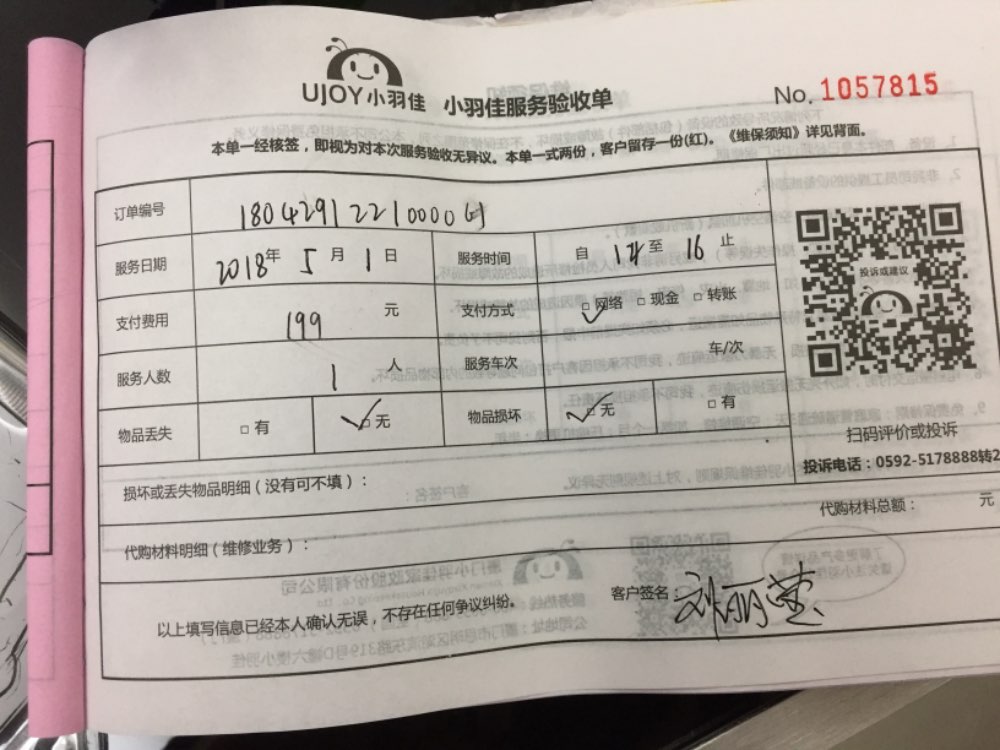 UJOY小羽佳 小羽佳服务验收单 No. 1057815
本单一经核签，即视为对本次服务验收无异议。本单一式两份，客户留存一份(红)。《维保须知》详见背面。
订单编号
服务日期 2018年 5月 1日 服务时间 自 14 至 16 止
支付费用 199 元 支付方式 □网络 □现金 □转账
服务人数 1 人 服务车次 车/次
物品丢失 □有 □无 物品损坏 □无 □有
投诉或建议
扫码评价或投诉
投诉电话：0592-5178888转2
损坏或丢失物品明细（没有可不填）：
代购材料总额： 元
代购材料明细（维修业务）：
以上填写信息已经本人确认无误，不存在任何争议纠纷。
客户签名：刘丽莹